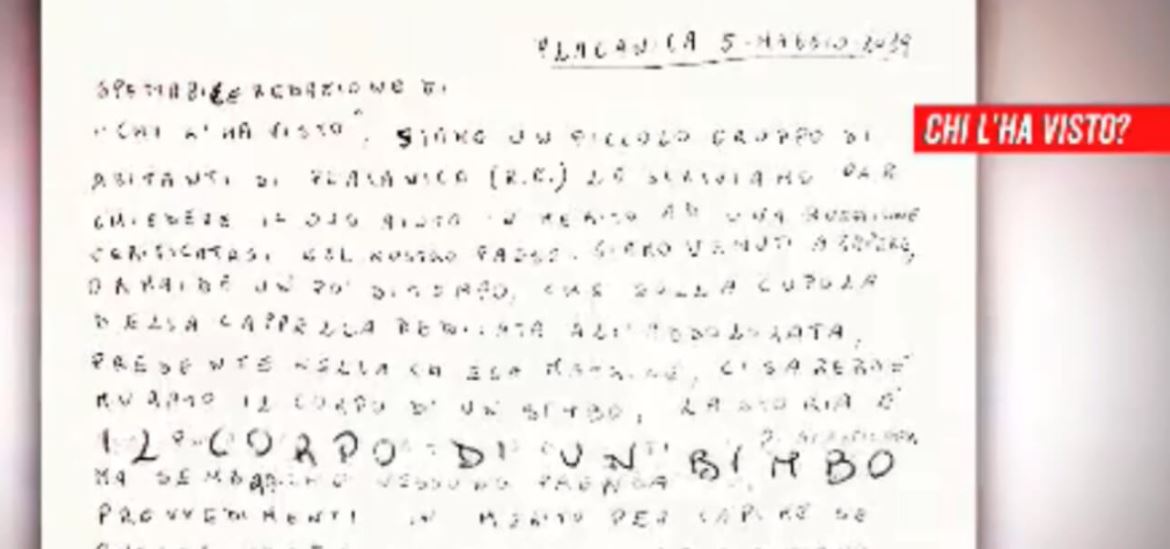 PLACANICA 5 MAGGIO 2019
SPETTABILE REDAZIONE DI
"CHI L'HA VISTO", SIAMO UN PICCOLO GRUPPO DI
CHI L'HA VISTO?
ABITANTI DI PLACANICA (R.C.) LE SCRIVIAMO PER
CHIEDERE IL SUO AIUTO IN MERITO AD UNA
NEL NOSTRO PAESE. SIAMO VENUTI A SAPERE,
ORMAI DA UN PO' DI TEMPO, CHE SULLA CUPOLA
DELLA CAPPELLA DEDICATA ALL'ADDOLORATA,
PRESENTE NELLA CHIESA MATRICE, CI SAREBBE
MURATO IL CORPO DI UN BIMBO, LA STORIA È
IL CORPO DI UN BIMBO
MA NESSUNO PRENDA
PROVVEDIMENTI IN MERITO PER CAPIRE SE